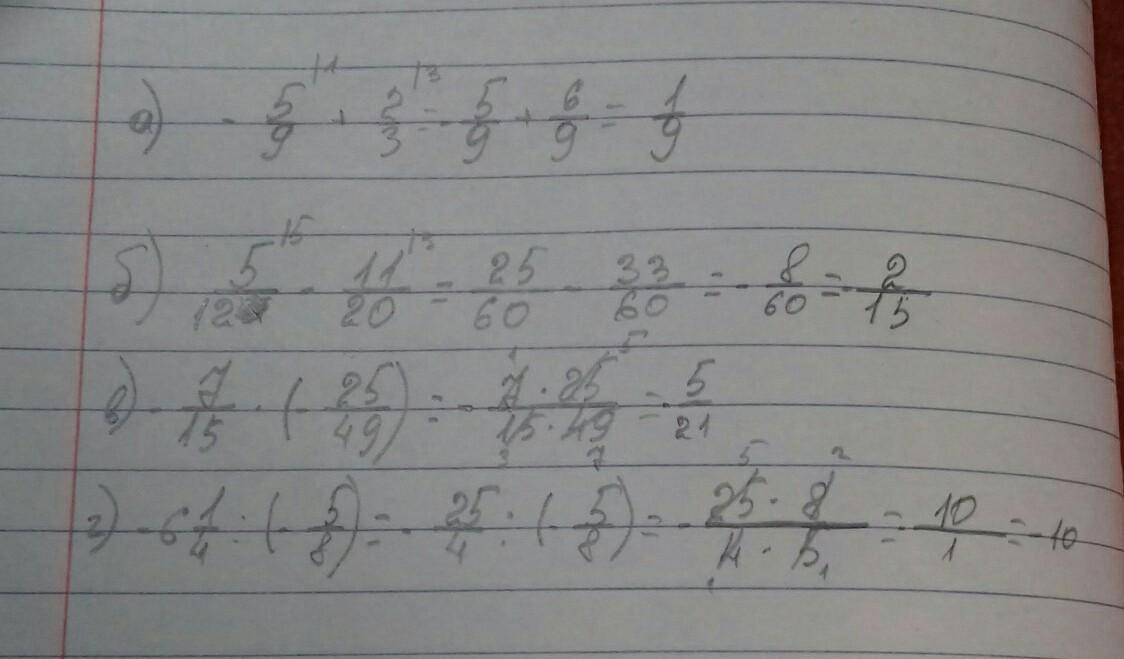 а) - 5/9 |1 + 2/3 |3 = - 5/9 + 6/9 = 1/9
б) 5/12 |5 - 11/20 |3 = 25/60 - 33/60 = - 8/60 = - 2/15
в) - 7/15 · (- 25/49) = - 7 · 25/15 · 49 = - 5/21
г) - 6 1/4 : (- 5/8) = - 25/4 : (- 5/8) = - 25 · 8/4 · 5 = - 10/1 = -10